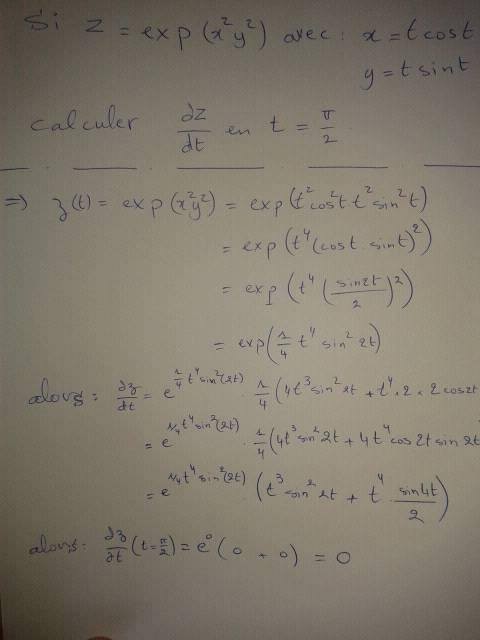 Si z = exp(x²y²) avec : x = t cost
y = t sint
Calculer ∂z/dt en t = π/2
=> z(t) = exp(x²y²) = exp(t²cos²t t²sin²t)
= exp(t⁴(cost sint)²)
= exp(t⁴(sin2t/2)²)
= exp(1/4 t⁴ sin²2t)
alors : ∂z/dt = e^(1/4 t⁴sin²(2t)) · 1/4 (4t³sin²2t + t⁴×2×2cos2t
= e^(1/4 t⁴sin²(2t)) · 1/4 (4t³sin²2t + 4t⁴cos2t sin2t
= e^(1/4 t⁴sin²(2t)) (t³sin²2t + t⁴ sin4t/2)
alors : ∂z/∂t (t=π/2) = e⁰(0 + 0) = 0